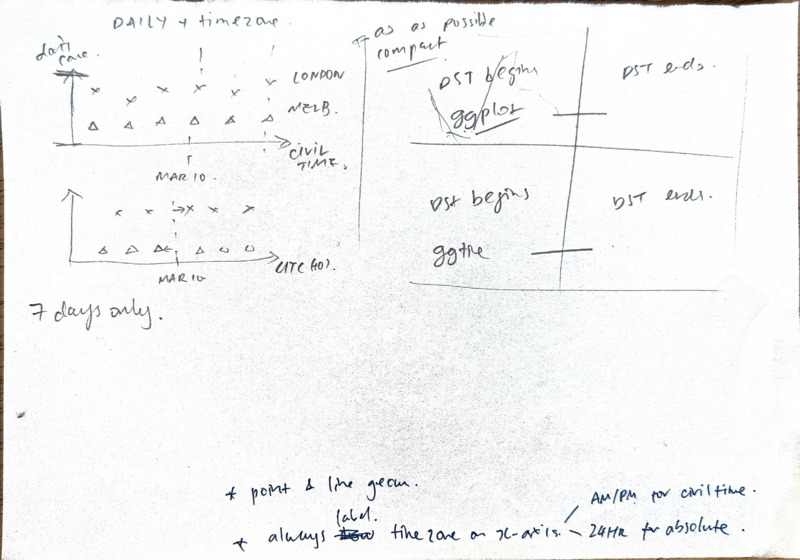 DAILY + timezone.
LONDON
MELB.
CIVIL TIME.
MAR 10.
UTC (+0).
MAR 10
7 days only.
as as possible
compact
DST begins
ggplot
DST ends.
DST begins
ggtime
DST ends.
* point & line geom.
* always label timezone on x-axis.
AM/PM for civil time.
24HR for absolute.